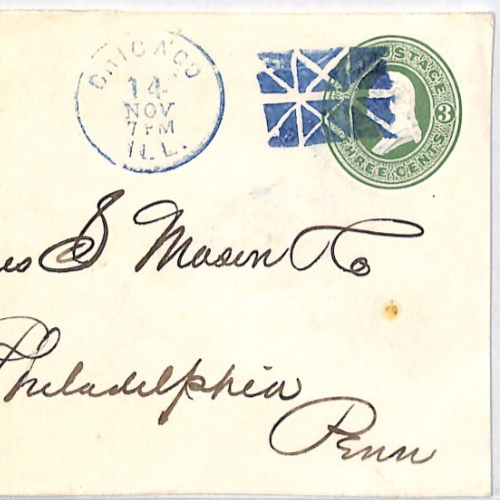 CHICAGO
14
NOV
7PM
ILL.
POSTAGE
3
THREE CENTS
es S Mason & Co
Philadelphia
Penn